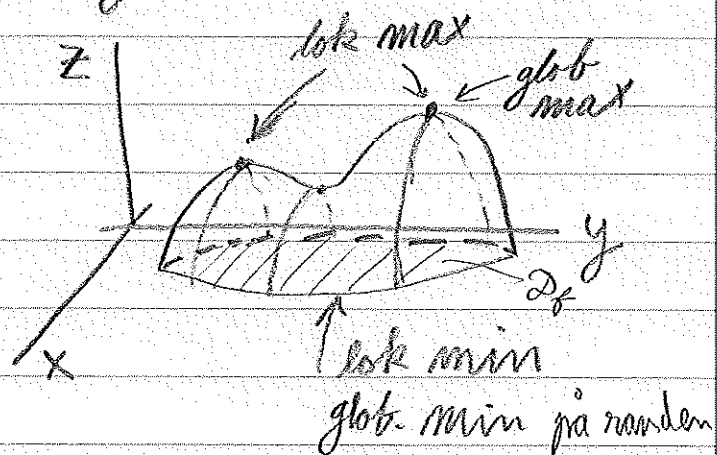 lok max
Z
glob
max
y
D_f
x
lok min
glob. min på randen